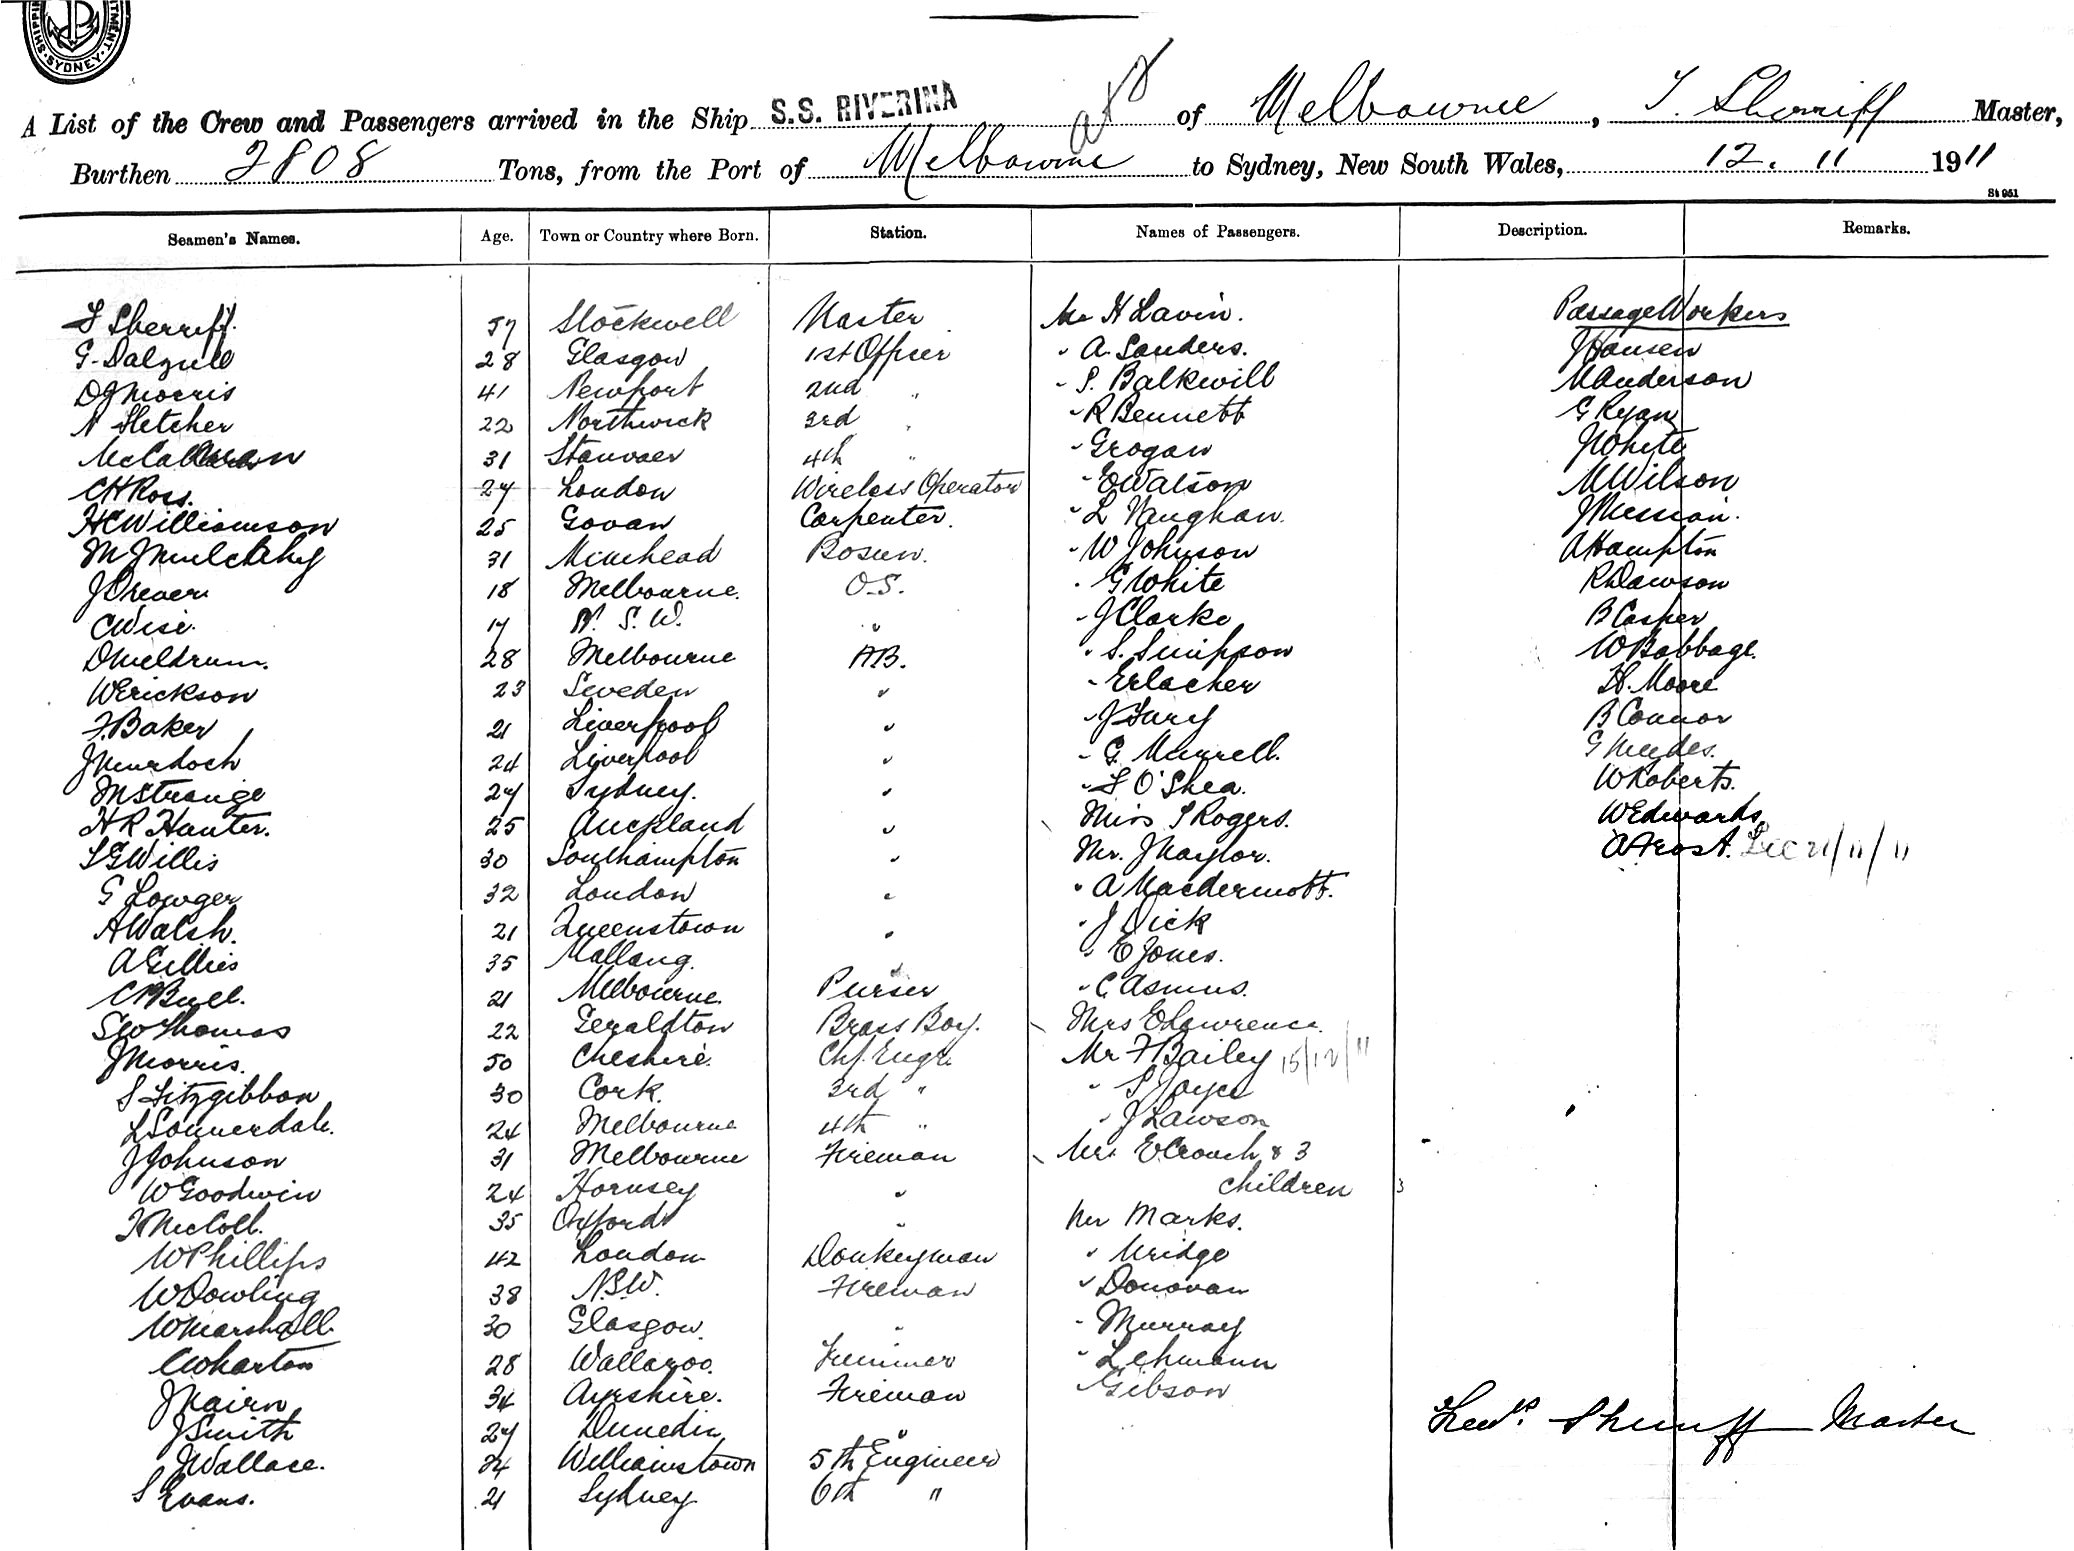 SHIPPING
DEPARTMENT. SYDNEY.
A List of the Crew and Passengers arrived in the Ship S.S. RIVERINA of Melbourne, Sherriff Master,
Burthen 2808 Tons, from the Port of Melbourne to Sydney, New South Wales, 12. 11 1911
St 951
Seamen's Names. Age. Town or Country where Born. Station. Names of Passengers. Description. Remarks.
Sherriff. 57 Stockwell Master Mr H Lavin. Passage Workers
G. Dalzull 28 Glasgow 1st Officer " A. Sanders. J Hansen
D J Morris 41 Newport 2nd " " S. Balkwill M Anderson
N Fletcher 22 Northwick 3rd " " R Bennett G Ryan
McCallum 31 4th " " Grogan J White
C H Ross. 27 London Wireless Operator " E Watson M Wilson
H C Williamson 25 Govan Carpenter. " L Vaughan.
M J Mulcahy 31 Muirhead Bosun. " W Johnson A Hampton
J Drever 18 Melbourne. O.S. " G White R Dawson
C Wise. 17 N. S. W. " " J Clarke B Casper
D Meldrum. 28 Melbourne A.B. " S. Simpson W Babbage.
W Erickson 23 Sweden " " Erlacher H. Moore
F. Baker 21 Liverpool " " J Fury B Connor
J Murdoch 24 Liverpool " " G. Murrell. G
M Strange 27 Sydney. " " O'Shea. W Roberts.
H R Hunter. 25 Auckland " Miss S Rogers. W Edwards
S G Willis 30 Southampton " Mr. J Naylor. A Frost. 21/11/11
G Lowger 32 London " " A Macdermott.
A Walsh. 21 Queenstown " " J Dick
A Gillies 35 Mallang. " " E Jones.
C Bull. 21 Melbourne. Purser " C. Asmus.
S W Thomas 22 Geraldton Brass Boy. Mrs E Lawrence.
J Morris. 50 Cheshire. Chf. Engr. Mr F Bailey 15/12/11
S Fitzgibbon 30 Cork. 3rd " " S Joyce
L Sonnerdale. 24 Melbourne 4th " " J Lawson
J Johnson 31 Melbourne Fireman Mrs E Crouch & 3
W Goodwin 24 Hornsey " children 3
McColl. 35 Oxford " Mr Marks.
W Phillips 42 London Donkeyman " Uridge
W Dowling 38 N.S.W. Fireman " Donovan
W Marshall. 30 Glasgow. " " Murray
C Wharton 28 Wallaroo. Trimmer " Lehmann
J Nairn 34 Ayrshire. Fireman Gibson
J Smith 27 Dunedin " Fredk. Sherriff Master
J Wallace. 24 Williamstown 5th Engineer
S Evans. 21 Sydney 6th "